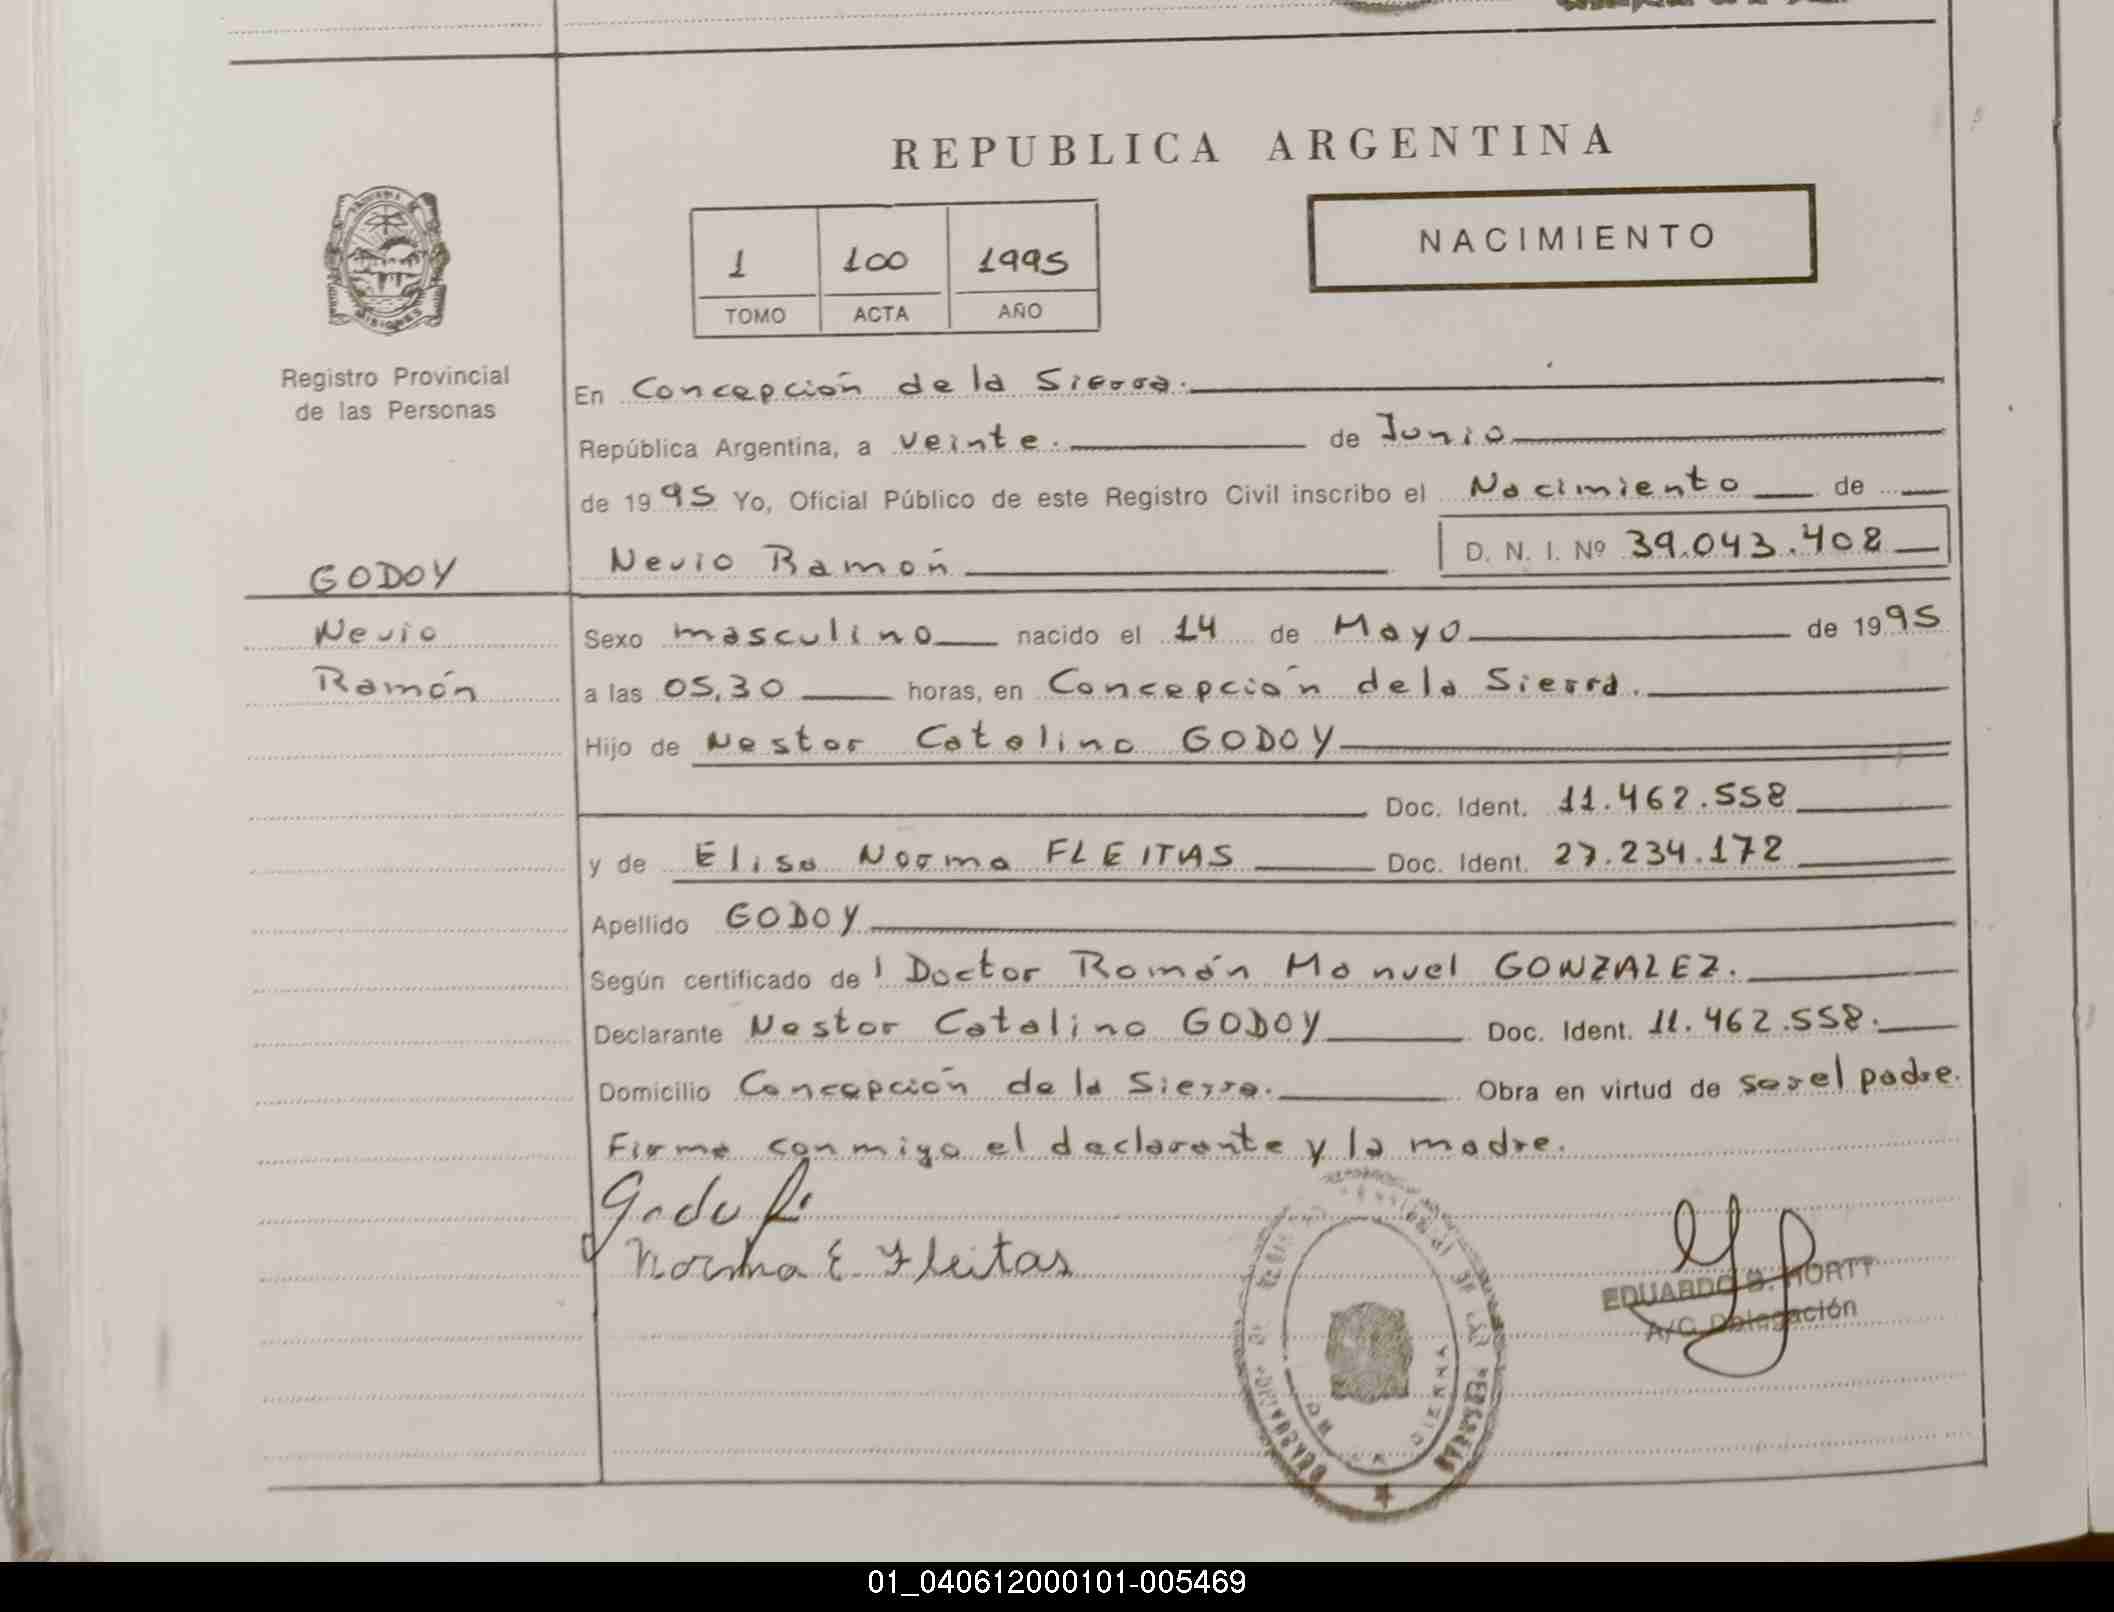 REPUBLICA ARGENTINA
NACIMIENTO
1 100 1995
TOMO ACTA AÑO
MISIONES
Registro Provincial
de las Personas
En Concepción de la Sierra.
República Argentina, a veinte. de Junio
de 1995 Yo, Oficial Público de este Registro Civil inscribo el Nacimiento de
GODOY
Nevio
Ramón
Nevio Ramón D. N. I. Nº 39.043.408
Sexo masculino nacido el 14 de Mayo de 1995
a las 05.30 horas, en Concepción de la Sierra.
Hijo de Nestor Catalino GODOY
Doc. Ident. 11.462.558
y de Elisa Norma FLEITAS Doc. Ident. 27.234.172
Apellido GODOY
Según certificado del Doctor Román Manuel GONZALEZ.
Declarante Nestor Catalino GODOY Doc. Ident. 11.462.558.
Domicilio Concepción de la Sierra. Obra en virtud de ser el padre.
Firma conmigo el declarante y la madre.
Norma E. Fleitas
EDUARDO
A/C Delegación
DE LAS PERSONAS
01_040612000101-005469